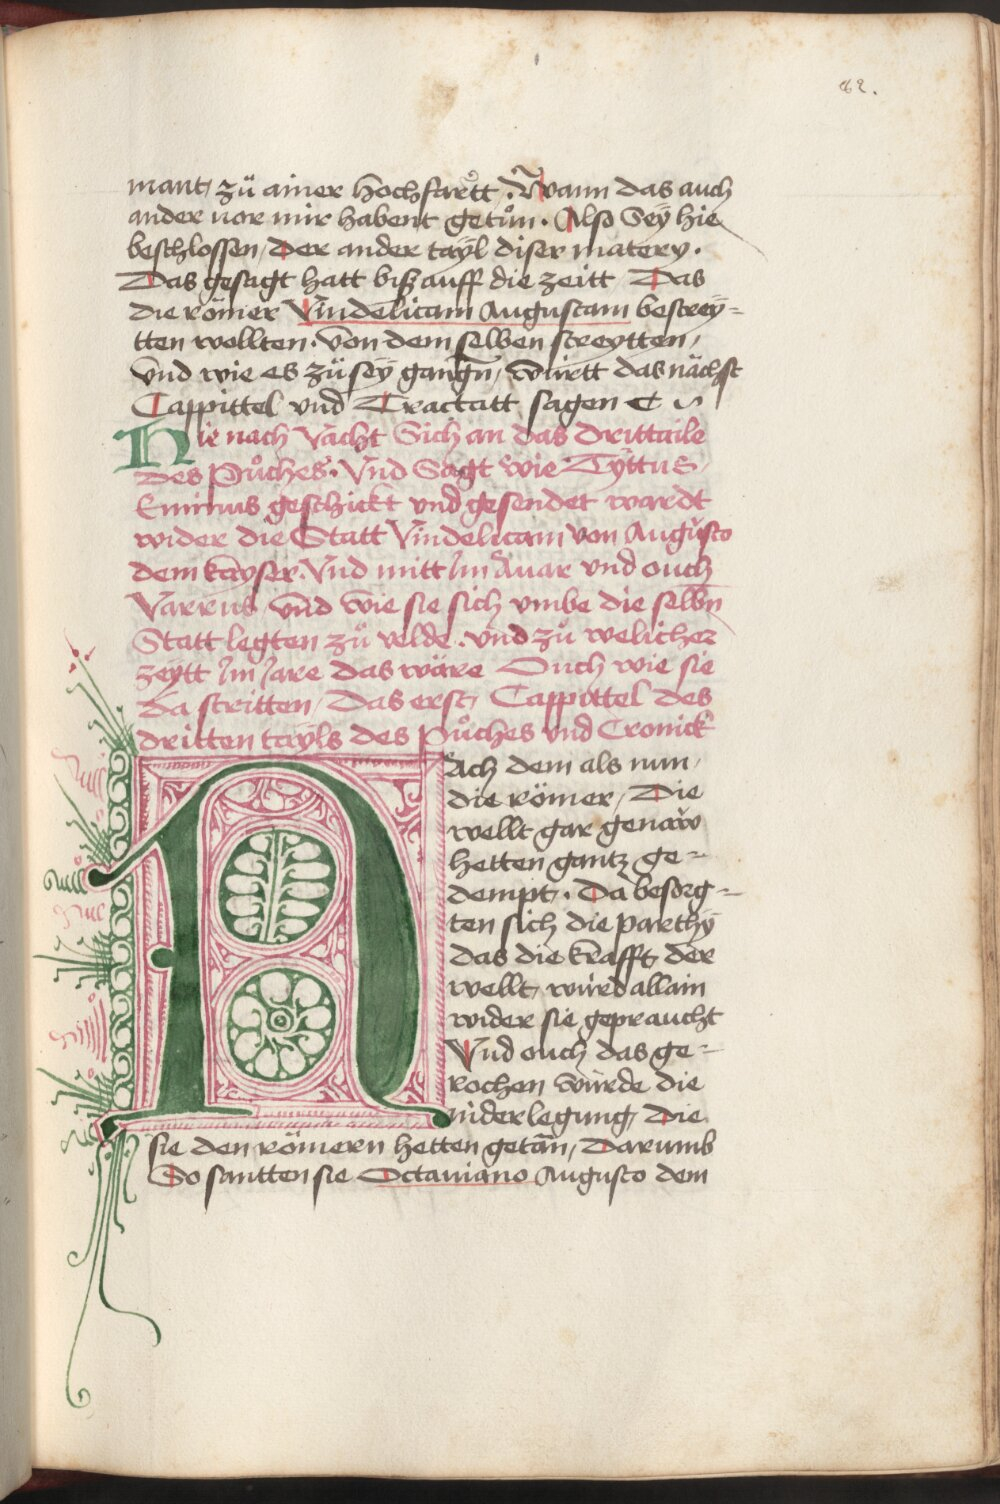 62.
mant, zü ainer hochfartt. Wann das auch
ander vor mir habent getůn. Also Sey hie
beschlossen, Der ander tayl diser matery.
Das gesagt hatt bisz auff die zeitt Das
die römer Vindelicam Augustam bestrey=
tten wollten. von dem selben streytten,
vnd wie es zü sey gangn, württ das nächst
Cappittel vnd Tractatt sagen
Hie nach Vacht Sich an das drittaile
des Půches. Vnd Sagt wie Tyttus
Ennius geschickt vnd gesendet wardt
wider die Statt Vindelicam von Augusto
dem kayser. Vnd mitt Jm Auar vnd ouch
Varrus vnd wie sie sich vmbe die selbn
Statt legten zů velde. vnd zů welicher
zeytt Jm Jare das wäre Ouch wie sie
da stritten, Das erst, Cappittel des
dritten tayls des Půches vnd Cronick
Nach dem als nun,
die römer, Die
wellt gar genaw
hetten gantz ge=
dempt. Da besorg=
ten sich die parthy
das die krafft der
wellt, würd allain
wider sie gepraucht
Vnd ouch das ge=
rochen würde die
niderlegung, Die
sie den römern hetten getan, Darumb
So santten sie Octauiano Augusto dem